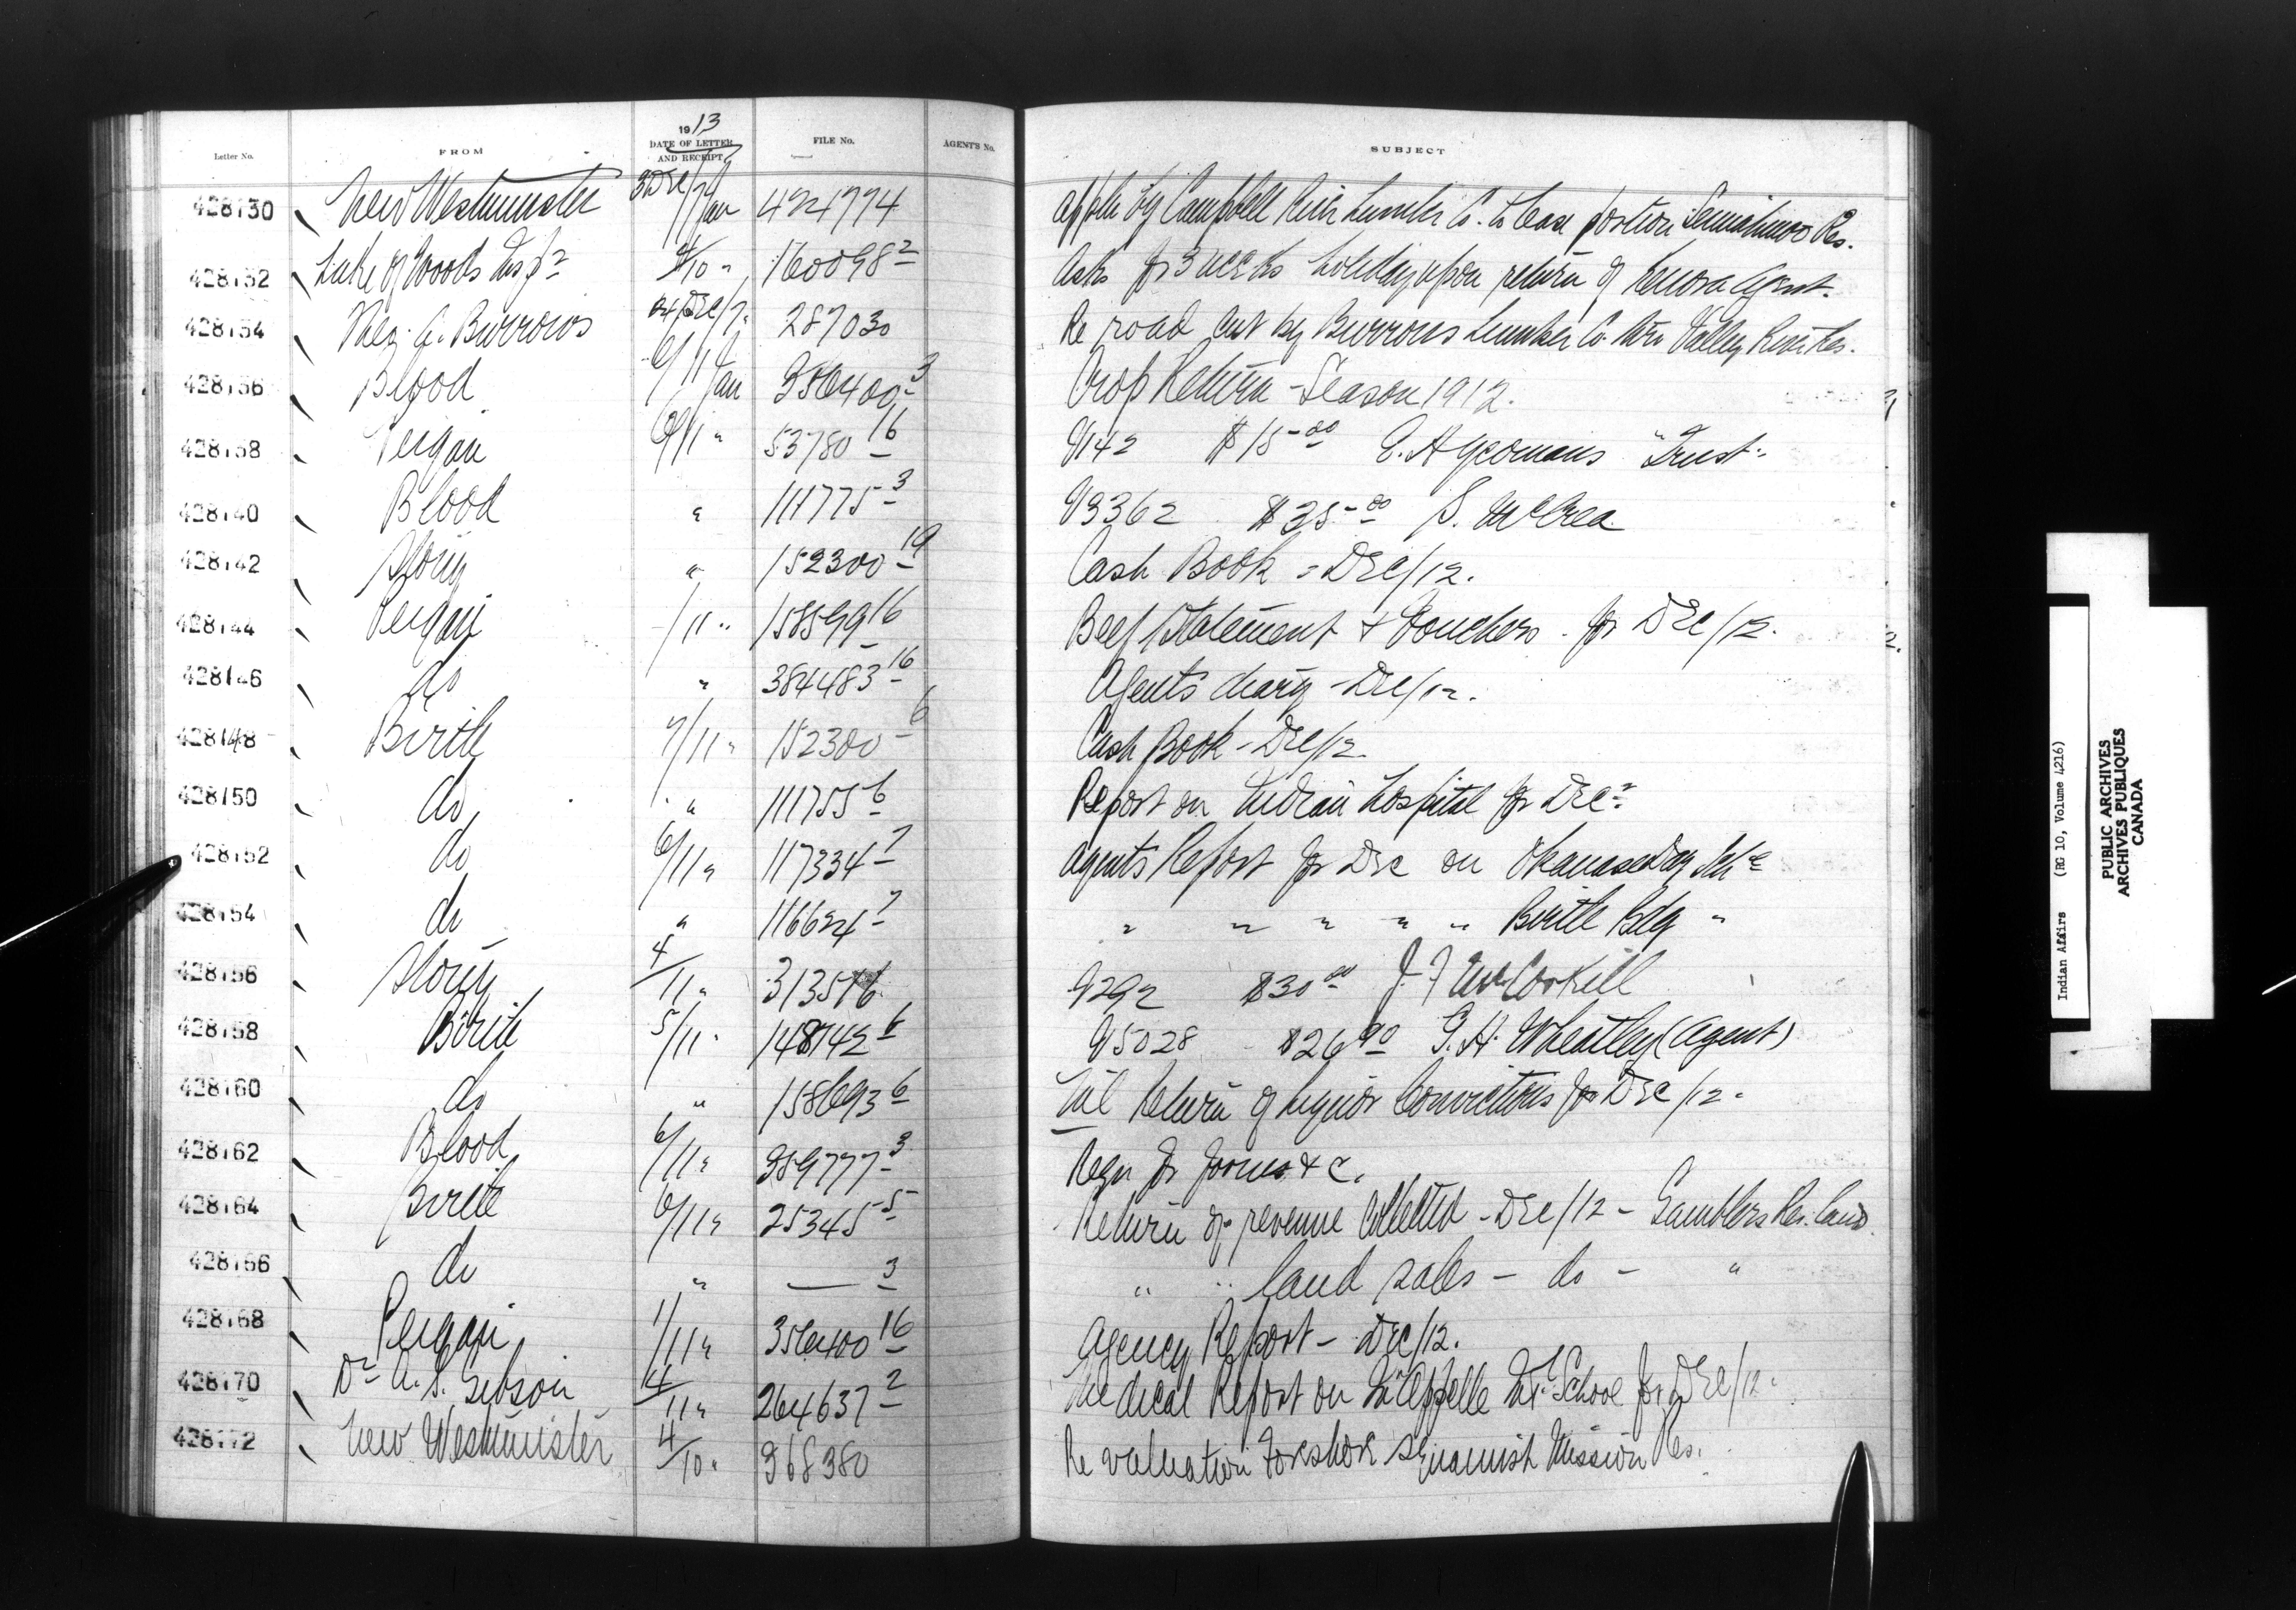 1913
Letter No. FROM DATE OF LETTER AND RECEIPT FILE No. AGENT'S No. SUBJECT
428130 New Westminster 31 Dec/12 7/Jan 424774 Appln by Campbell River Lumber Co. to lease portion Semiahmoo Res.
428132 Lake of Woods Insp^r 8/10 " 160098^2 Asks for 3 weeks holiday upon return of Kenora Agent.
428134 Theo. A. Burrows 24 Dec/12 287030 Re road cut by Burrows Lumber Co. thro Valley River Res.
428136 Blood 6/11 Jan 356400^3 Crop Return - Season 1912.
428138 Peigan 6/11 " 53780^16 V142 $15.00 E. H Yeomans "Trust"
428140 Blood " 111775^3 V3362 $35.00 S. McCrea
428142 Stony " 152300^19 Cash Book - Dec/12.
428144 Peigan /11 " 158599^16 Beef Statement & Vouchers for Dec/12.
428146 do " 384483^16 Agents diary - Dec/12.
428148 Birtle 7/11 " 152300^6 Cash Book - Dec/12
428150 do " 111755^6 Report on Indian Hospital for Dec^r
428152 do 6/11 " 117334^7 Agents Report for Dec on Okanase Day Sch^l
428154 do " 116624^7 " " " " " Birtle Bdg "
428156 Stony 4/11 " 313516 V292 $30.00 J. F McCorkill
428158 Birtle 5/11 " 148142^6 V5028 $26.90 G. H. Wheatley (Agent)
428160 do " 158693^6 Nil Return of Liquor Convictions for Dec/12.
428162 Blood 6/11 " 359777^3 Reqn for forms &c.
428164 Birtle 6/11 " 25345^5 Return of revenue collected - Dec/12 - Gamblers Res. land
428166 do " — ^3 " " land sales - do - "
428168 Peigan 1/11 " 356400^16 Agency Report - Dec/12.
428170 D^r A. S. Gibson 4/11 " 264637^2 Medical Report on Qu'Appelle Ind^l School for Dec/12.
428172 New Westminster 4/10 " 368380 Re valuation foreshore Squamish Mission Res.
Indian Affairs (RG 10, Volume 4216)
PUBLIC ARCHIVES
ARCHIVES PUBLIQUES
CANADA